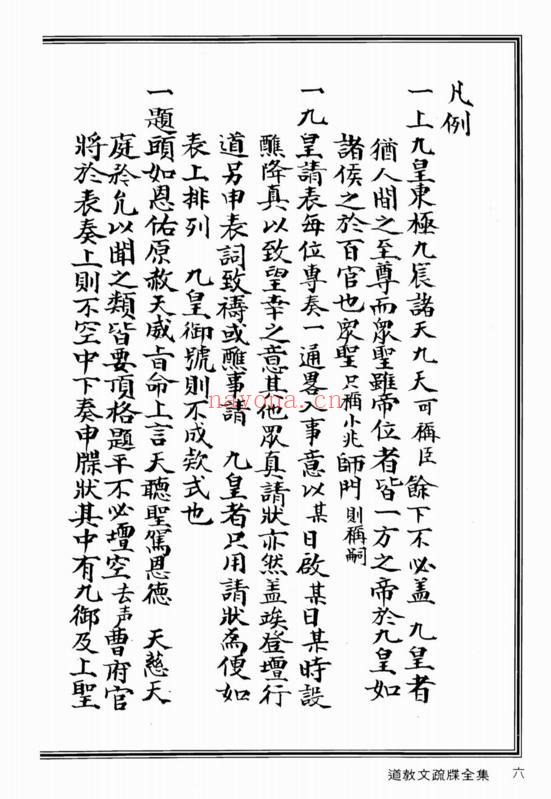 凡例
一上九皇東極九宸諸天九天可稱臣餘下不必盖　九皇者
猶人間之至尊而衆聖雖帝位者皆一方之帝於九皇如
諸侯之於百官也衆聖只稱小兆師門則稱嗣
一九皇請表每位專奏一通畧入事意以某日啟某日某時設
醮降真以致望幸之意其他衆真請狀亦然盖竢登壇行
道另申表詞致禱或醮事請　九皇者只用請狀爲便如
表上排列　九皇御號則不成欵式也
一題頭如恩佑原赦天威旨命上言天聽聖駕恩德　天慈天
庭矜允以聞之類皆要頂格題平不必壇空去声曹府官
將於表奏上則不空中下奏申牒狀其中有九御及上聖
nayona.cn
道敎文疏牒全集
六